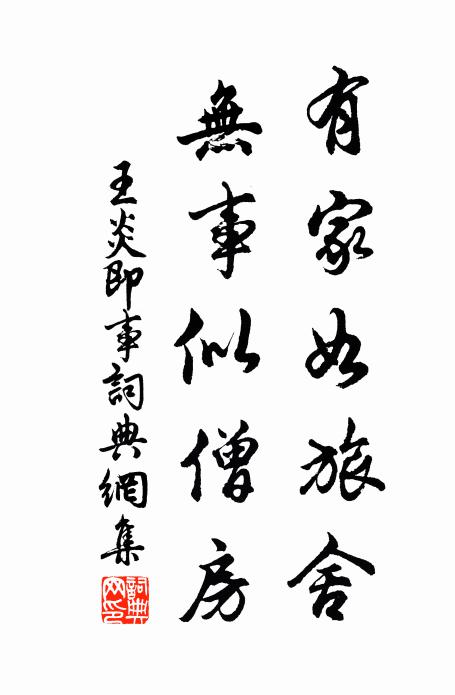 有家如旅舍
無事似僧房
王炎即事詞典網集
詞典網印